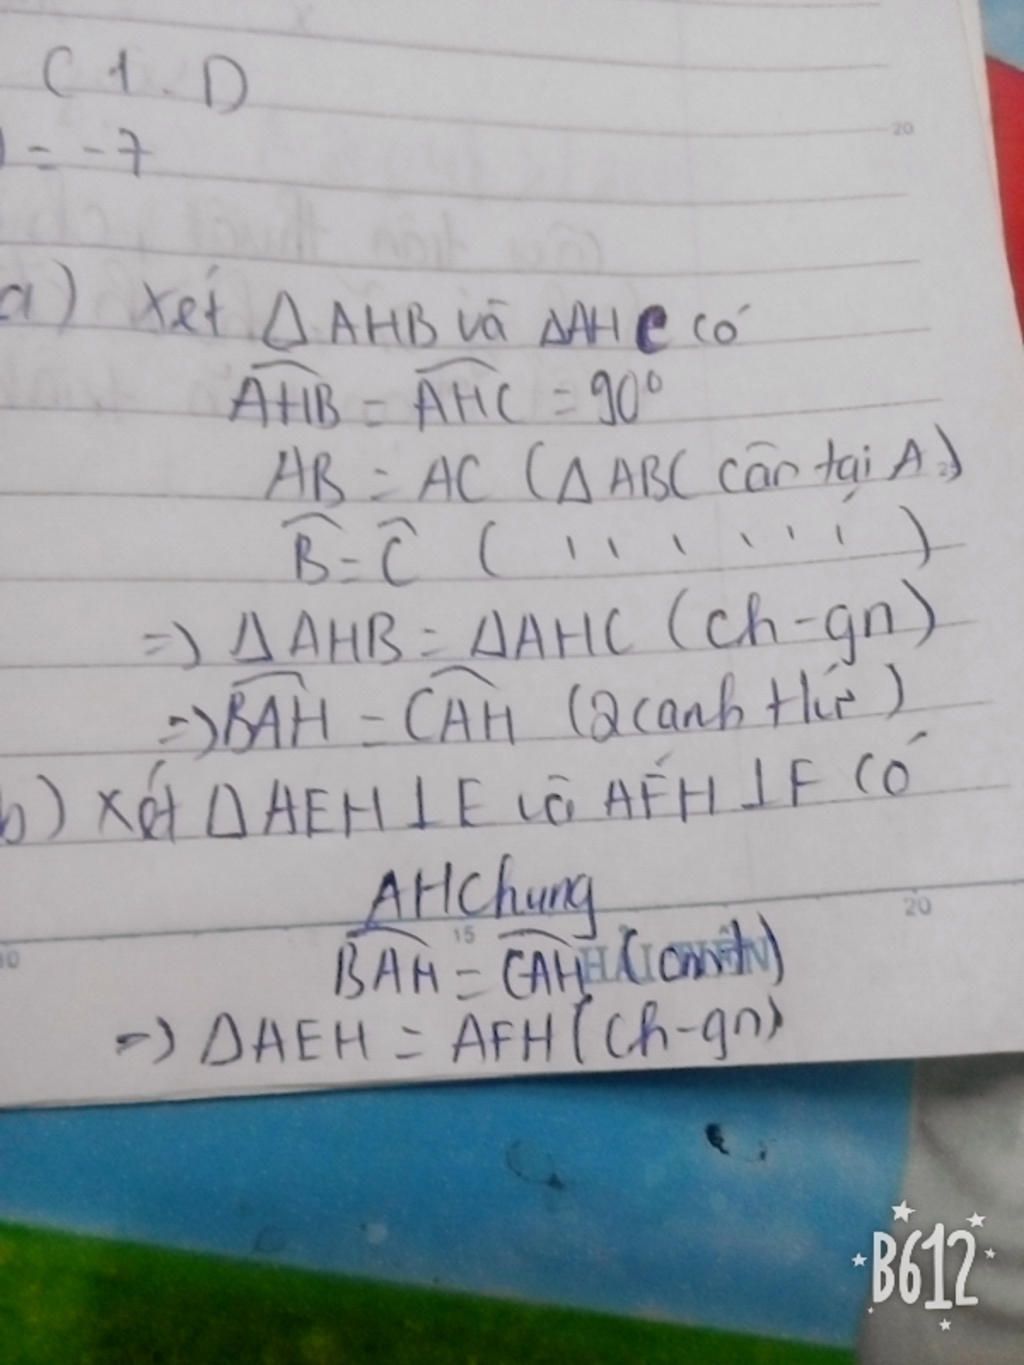 C 1. D
= -7
20
a) Xét Δ AHB và ΔAHC có
AHB = AHC = 90°
AB = AC (Δ ABC cân tại A)
B = C ( ' ' ' ' ' ' )
=) Δ AHB = ΔAHC (ch-gn)
=) BAH = CAH (2 canh + )
b) Xét Δ AEH ⊥ E và AFH ⊥ F có
AH Chung
20
15
BAH = CAH (cmt)
=) ΔAEH = AFH (ch-gn)
B612